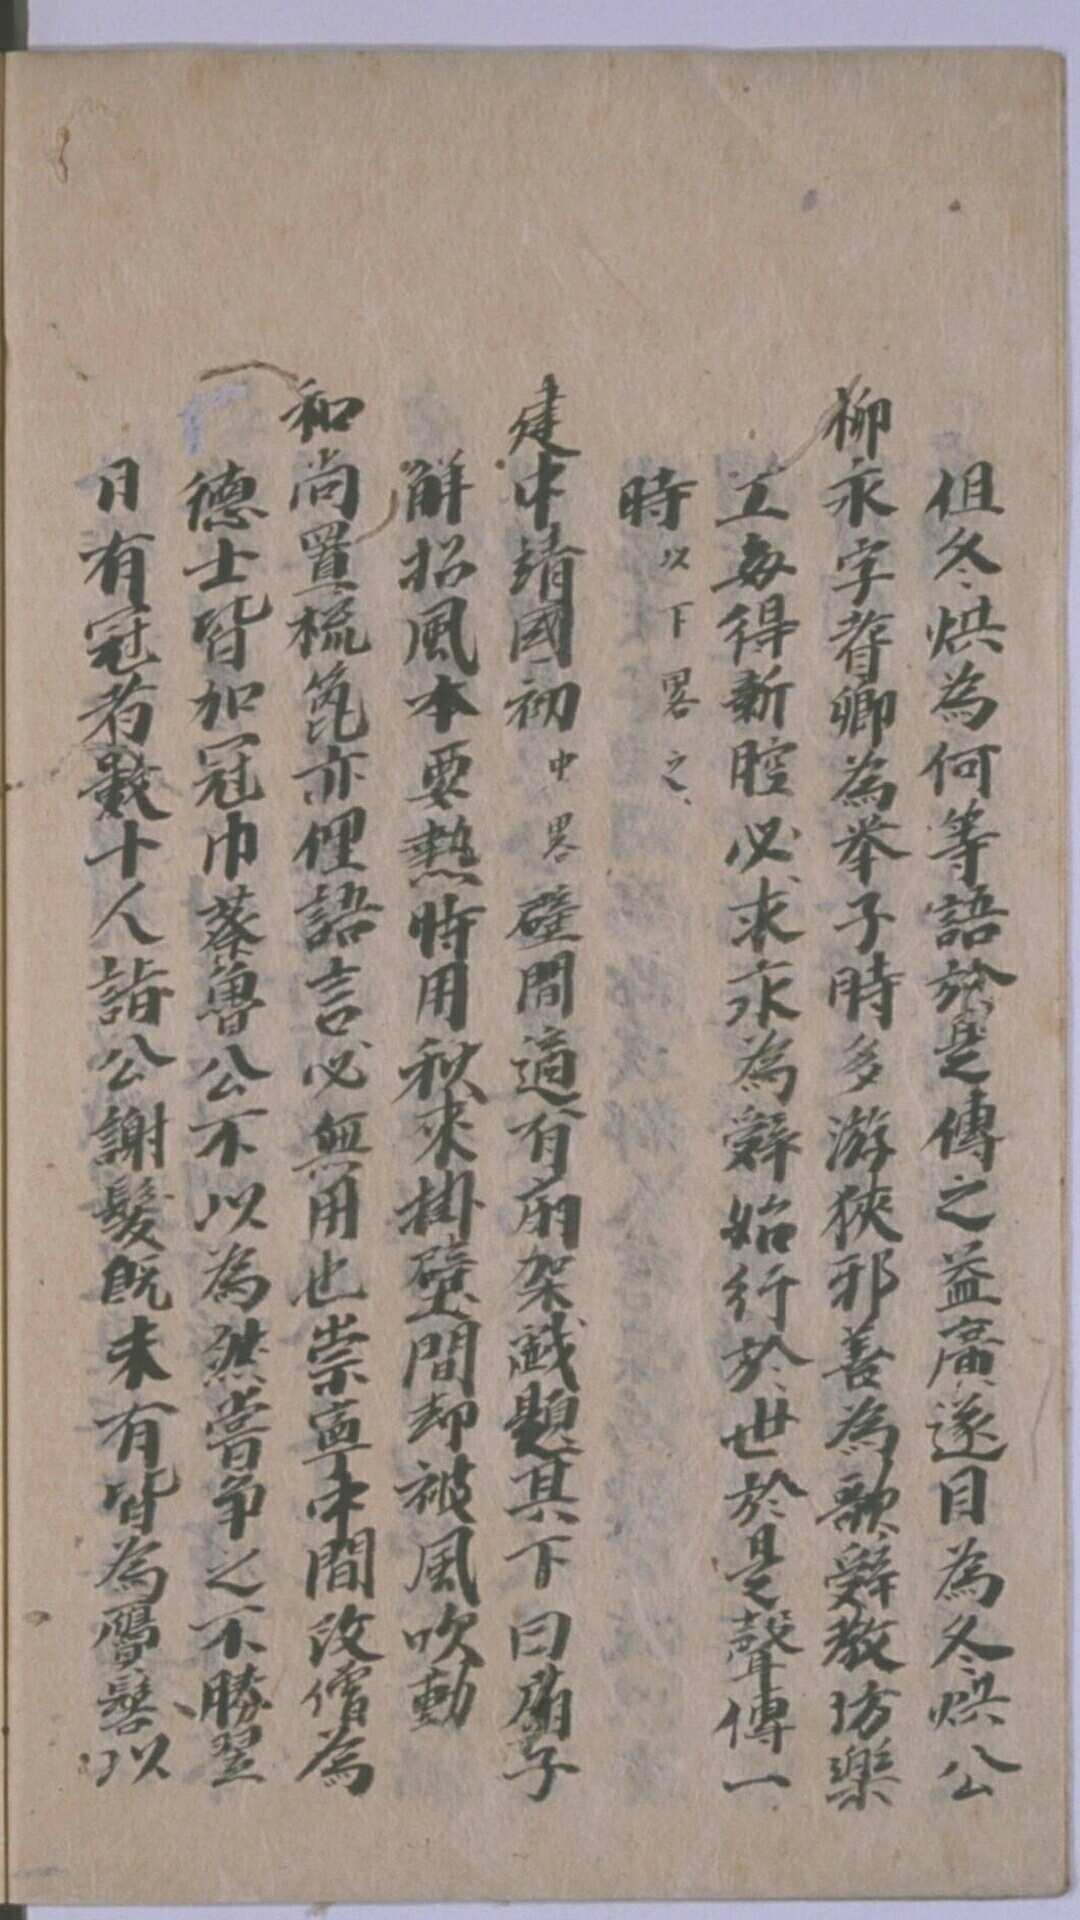 但冬烘為何等語於是傳之益廣遂目為冬烘公
柳永字耆卿為挙子時多游狹邪善為歌辭教坊樂
工毎得新腔必求永為辭始行於世於是聲傳一
時以下畧之
建中靖國初中畧壁間適有扇架戲題其下曰扇子
解招風本要熱時用秋来掛壁間却被風吹動
和尚置梳篦亦俚語言必無用也崇寧中間改僧為
德士皆加冠巾蔡魯公不以為然嘗争之不勝翌
日有冠者數十人詣公謝髮既未有皆為贋髻以